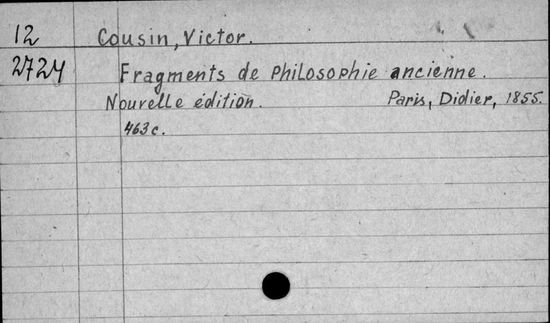 12 Cousin, Victor.
2724 Fragments de philosophie ancienne.
Nouvelle édition. Paris, Didier, 1855.
463 c.